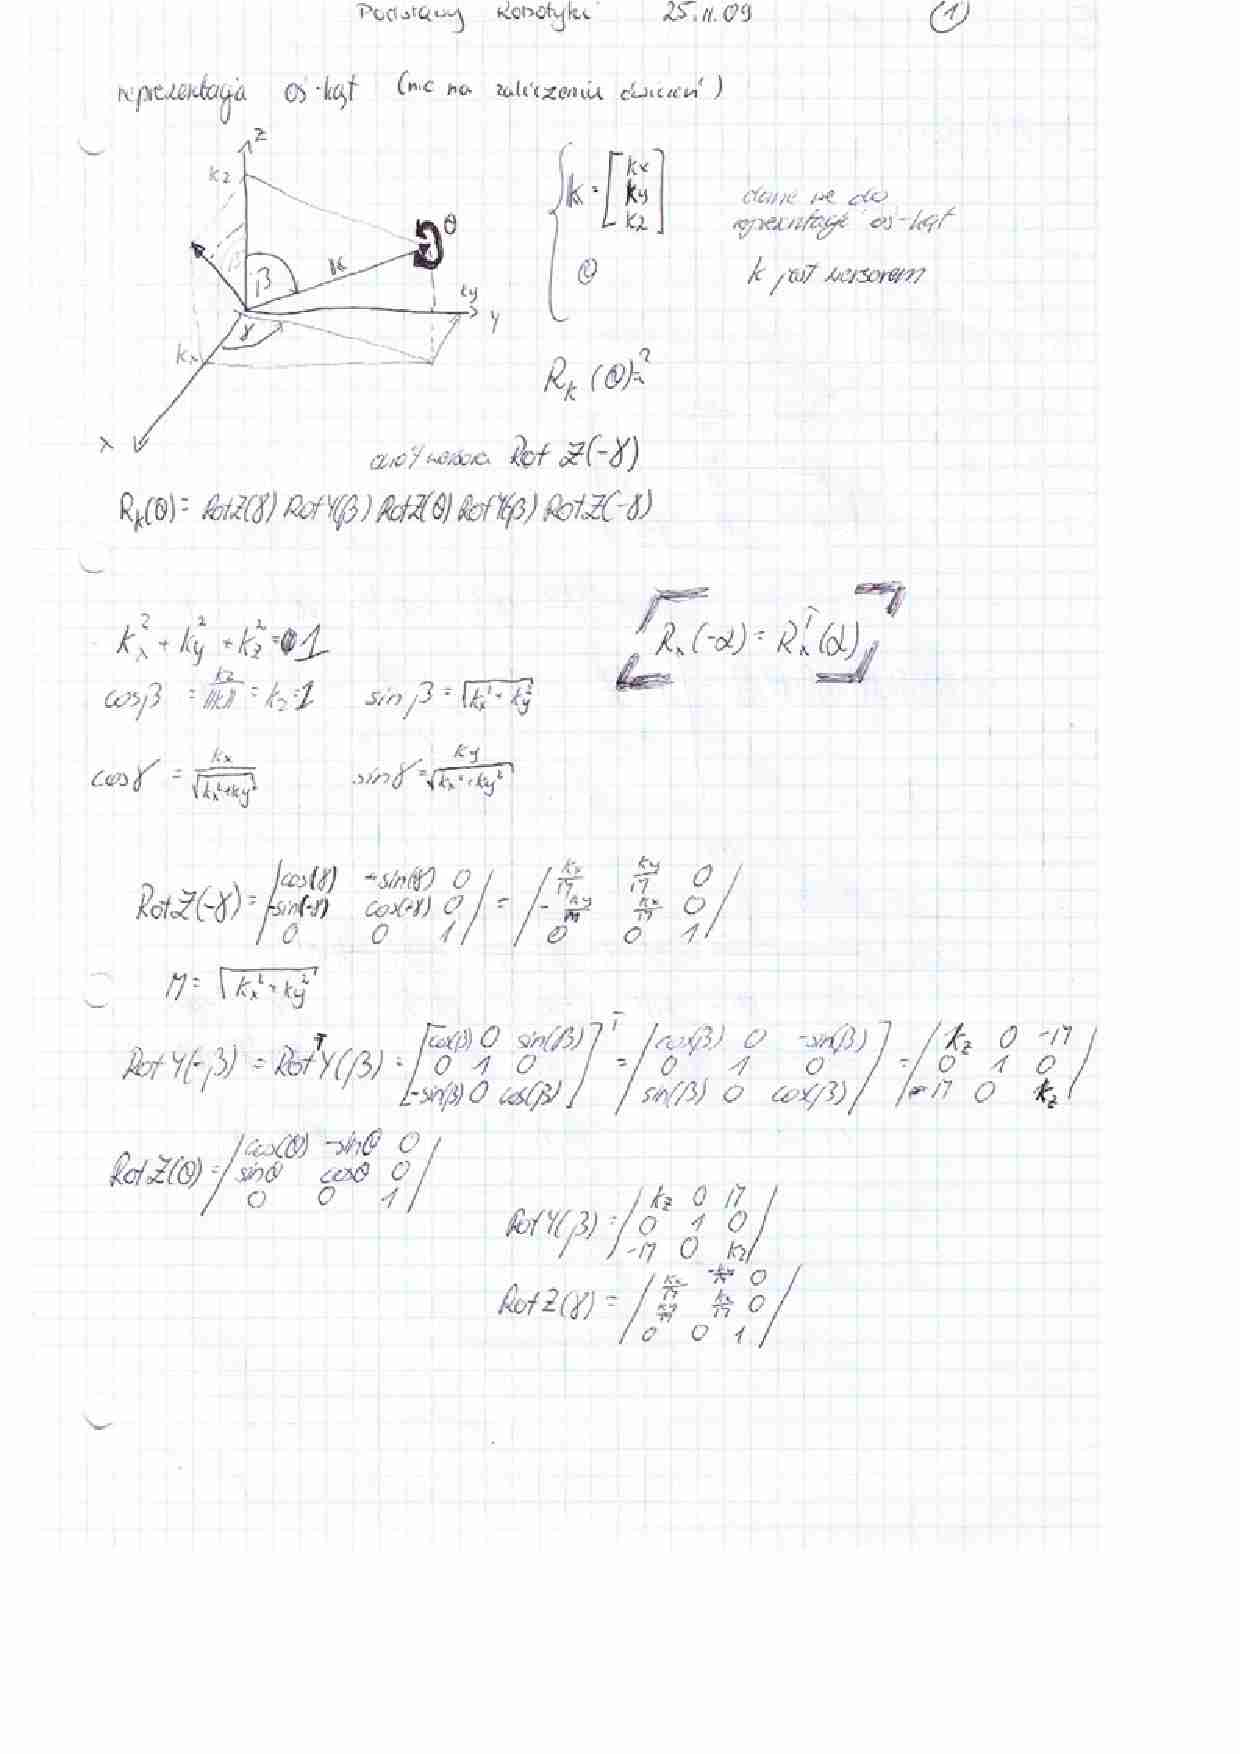 Podstawy Robotyki 25.11.09 (1)
reprezentacja oś-kąt (nie na zaliczeniu ćwiczeń)
z
kz
θ
β
k
ky
y
γ
kx
x
k = [kx ky kz]
θ
dane we do
reprezentacji oś-kąt
k jest wersorem
R_k (θ)=?
obrót wersora Rot Z(-γ)
R_k(θ) = RotZ(γ) RotY(β) RotZ(θ) RotY(β) RotZ(-γ)
kx² + ky² + kz² = 1
R_x(-α) = R_x^T(α)
cosβ = kz/||k|| = kz = 1 sin β = √(kx² + ky²)
cosγ = kx/√(kx²+ky²) sinγ = ky/√(kx²+ky²)
RotZ(-γ) = |cos(γ) -sin(γ) 0| = |kx/M ky/M 0|
|-sin(-γ) cos(-γ) 0| |-ky/M kx/M 0|
|0 0 1| |0 0 1|
M = √(kx² + ky²)
RotY(-β) = Rot^T Y(β) = [cos(β) 0 sin(β)]^T = |cos(β) 0 -sin(β)| = |kz 0 -M|
0 1 0 0 1 0 0 1 0
-sin(β) 0 cos(β) sin(β) 0 cos(β) M 0 kz
RotZ(θ) = |cos(θ) -sinθ 0|
sinθ cosθ 0
0 0 1
RotY(β) = |kz 0 M|
0 1 0
-M 0 kz
RotZ(γ) = |kx/M -ky/M 0|
ky/M kx/M 0
0 0 1